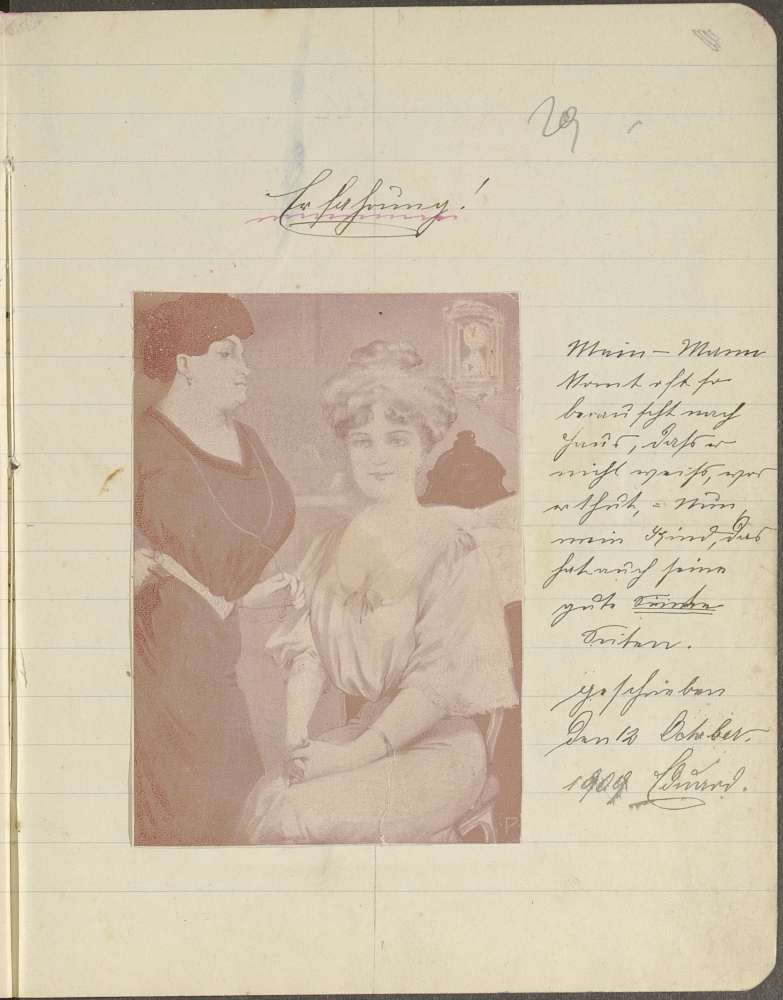 29
Erfahrung!
Mein – Mann
komt oft so
berauscht nach
Haus, dass er
nicht weiss, was
er thut, – Nun,
mein Kind, das
hat auch seine
gute
Seiten.
geschrieben
den 12 October.
1909 Eduard.